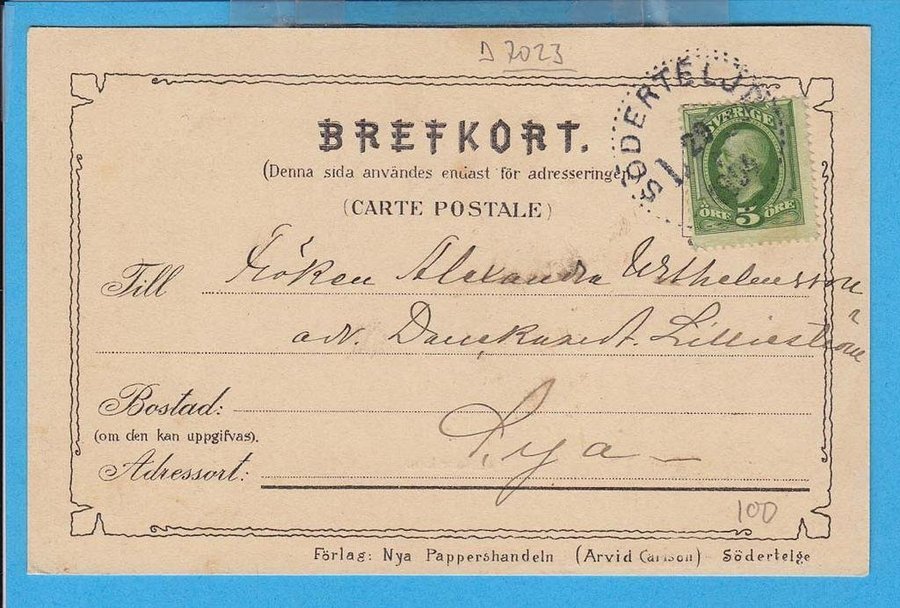 D 7023
BREFKORT.
(Denna sida användes endast för adresseringen)
(CARTE POSTALE)
SÖDERTELJE
29
SVERIGE
ÖRE 5 ÖRE
Till Fröken Alexandra Wilhelmsson
adr. Lillieström
Bostad:
(om den kan uppgifvas).
Adressort: Lya
100
Förlag: Nya Pappershandeln (Arvid Carlson) Södertelge